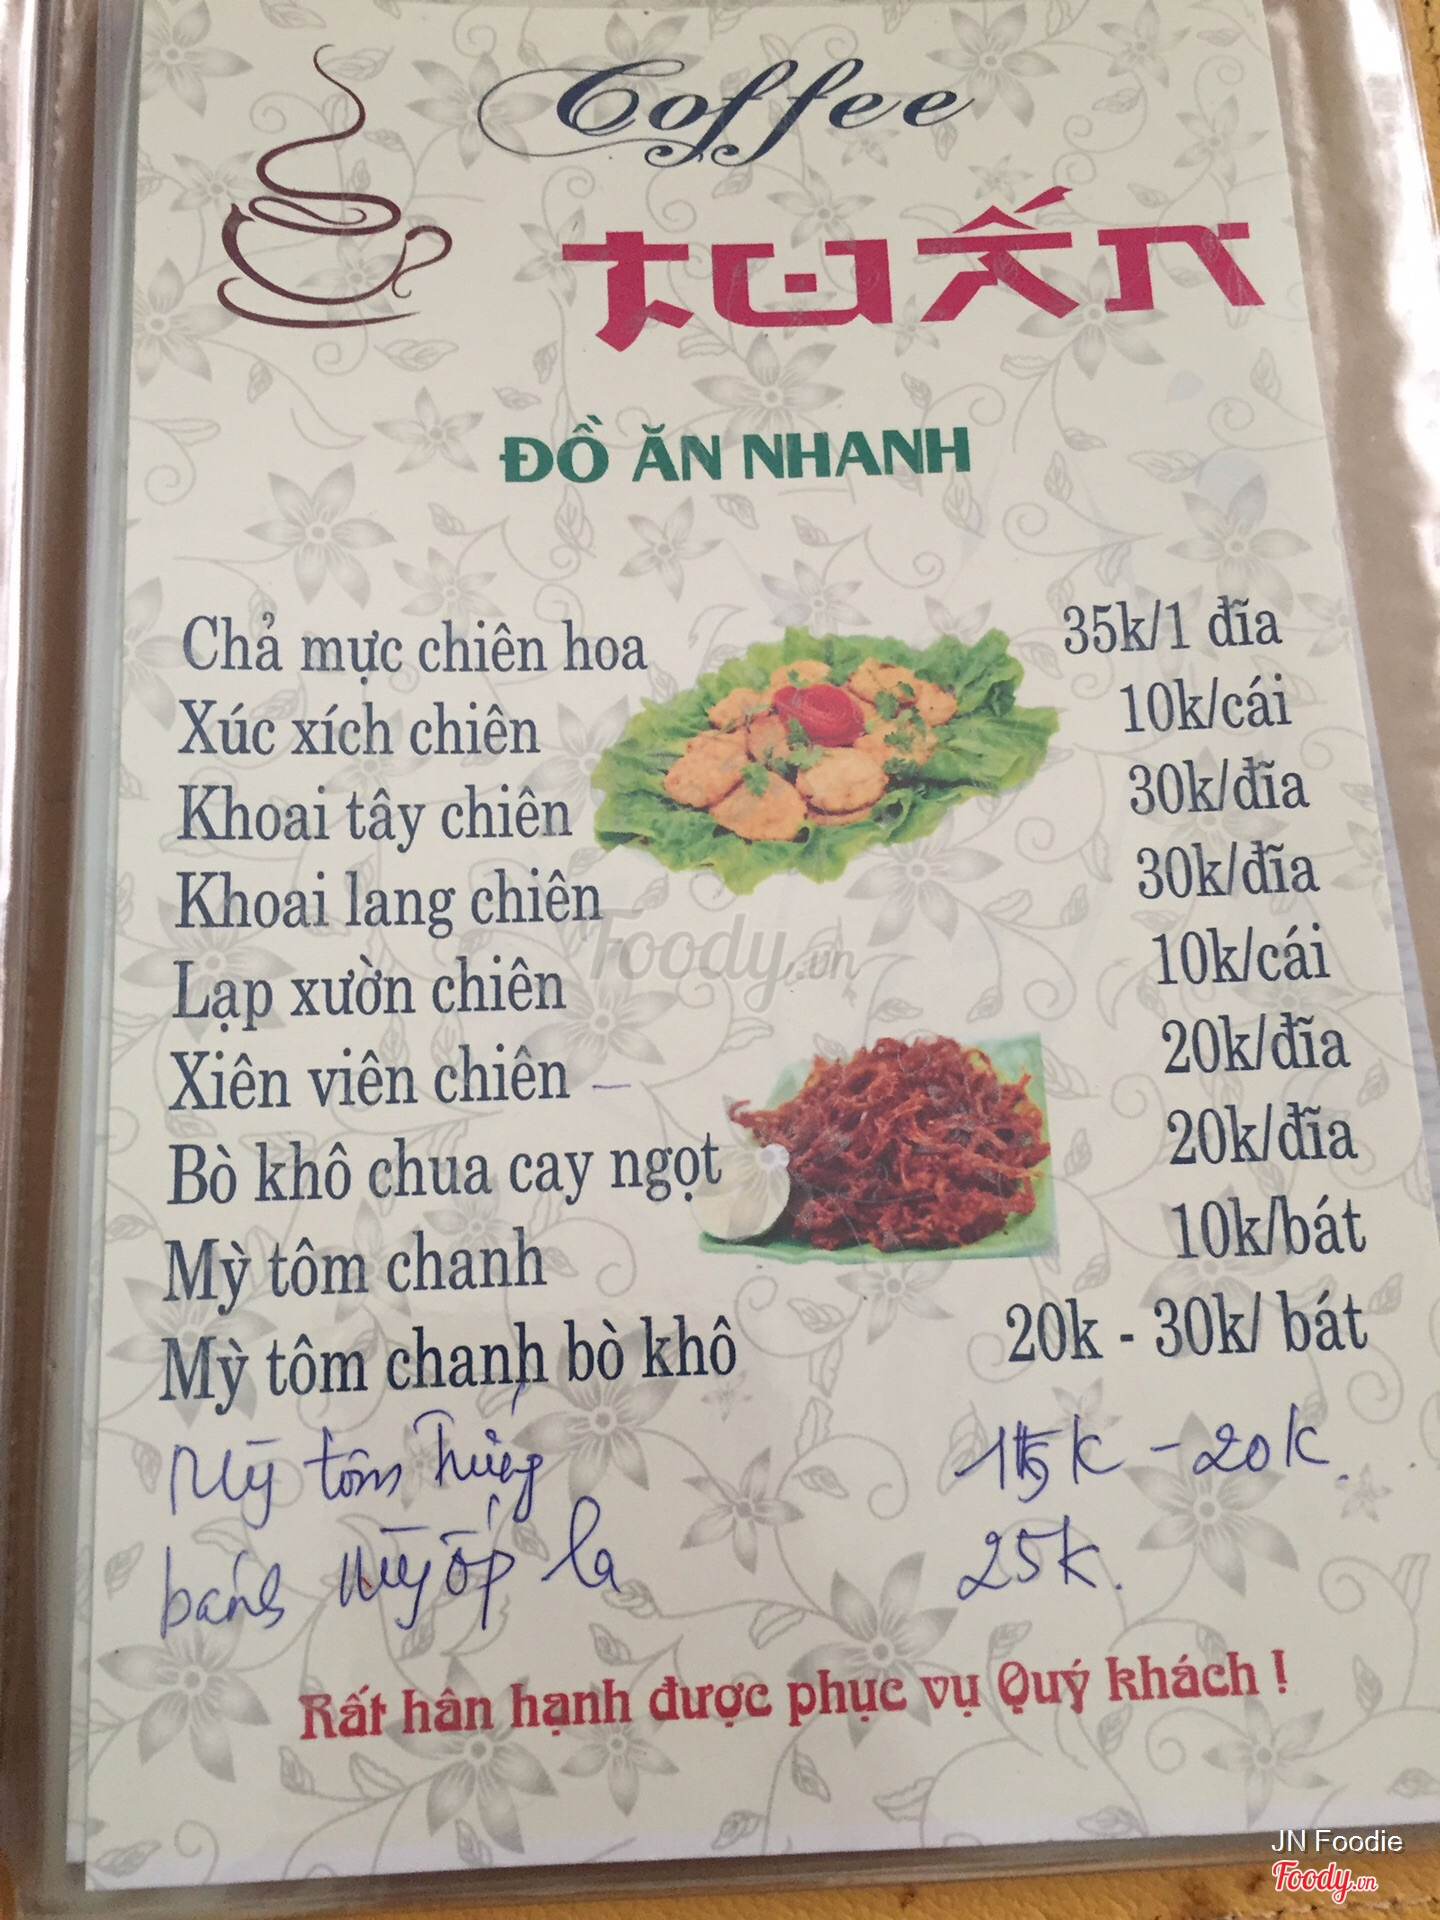 Coffee
TUẤN
ĐỒ ĂN NHANH
Chả mực chiên hoa 35k/1 đĩa
Xúc xích chiên 10k/cái
Khoai tây chiên 30k/đĩa
Khoai lang chiên 30k/đĩa
Lạp xườn chiên 10k/cái
Xiên viên chiên 20k/đĩa
Bò khô chua cay ngọt 20k/đĩa
Mỳ tôm chanh 10k/bát
Mỳ tôm chanh bò khô 20k - 30k/ bát
Mỳ tôm Trứng 15k - 20k.
bánh Mỳ ốp la 25k.
Rất hân hạnh được phục vụ Quý khách !
Foody.vn
JN Foodie
Foody.vn